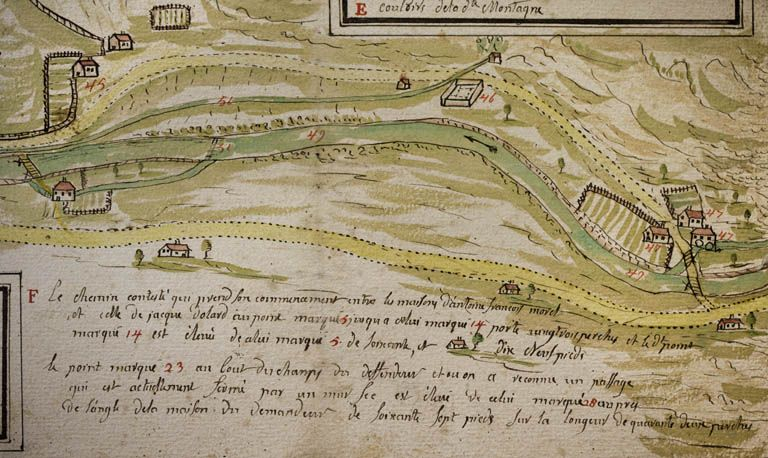 E Couloirs de la de Montagne
45
51
49
46
47
47
47
49
F Le chemin contesté qui prend son commencement entre les maisons d'antoine françois morel
et celle de jacque dolard au point marqué 5 jusqu'a celui marqué 14 porte vingt trois perches et le dt point
marqué 14 est élevé de celui marqué 5 de soixante, et dix neuf pieds
le point marqué 23 au bout du champs du deffendeur et ou on a reconnu un passage
qui est actuellement fermé par un mur sec est élevé de celui marqué 28 au pres
de l'angle de la maison du demandeur de soixante sept pieds sur la longeur de quarante deux perches